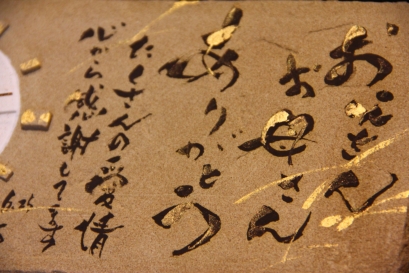 お父さん
お母さん
ありがとう
たくさんの愛情
心から感謝してます